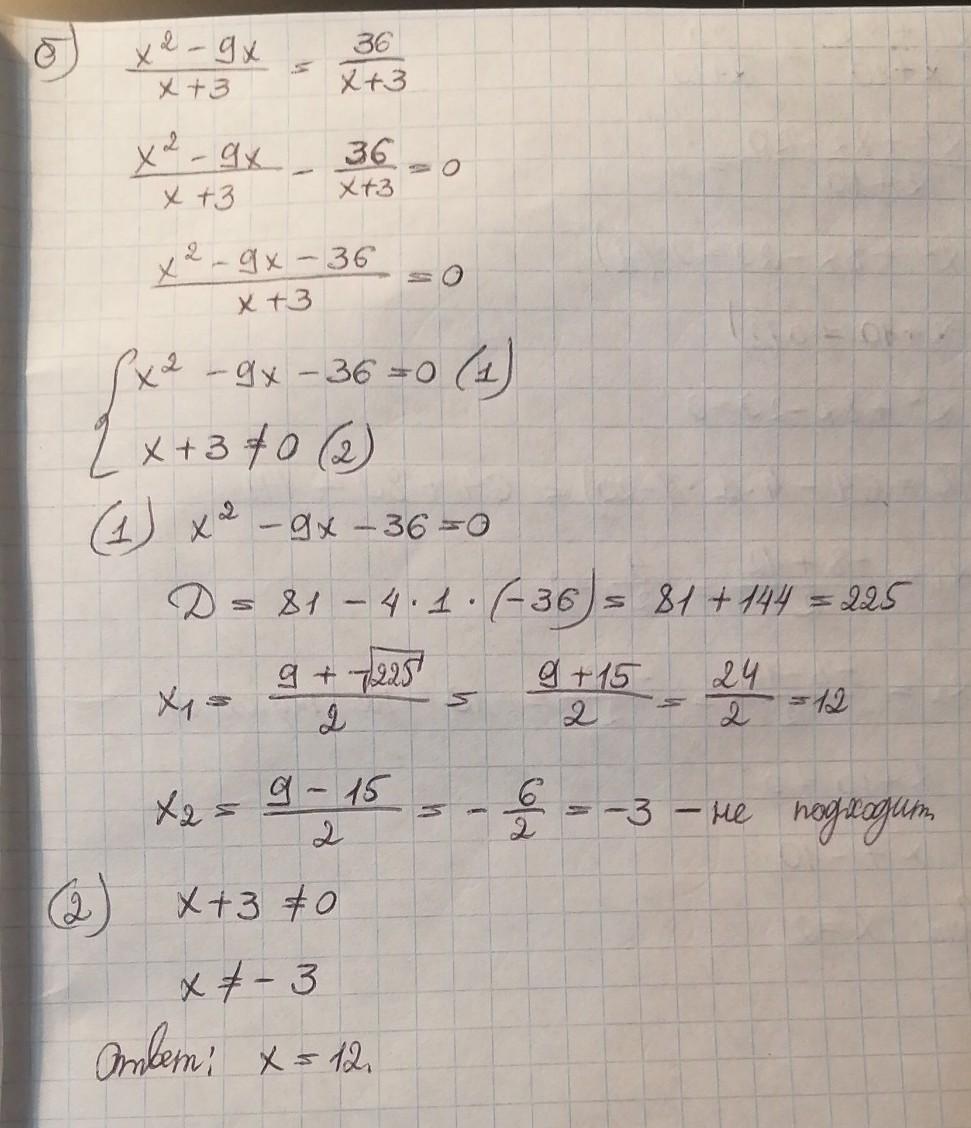 б) x² - 9x / x+3 = 36 / x+3
x² - 9x / x+3 - 36 / x+3 = 0
x² - 9x - 36 / x+3 = 0
{ x² - 9x - 36 = 0 (1)
x + 3 ≠ 0 (2)
(1) x² - 9x - 36 = 0
D = 81 - 4 · 1 · (-36) = 81 + 144 = 225
x₁ = 9 + √225 / 2 = 9 + 15 / 2 = 24 / 2 = 12
x₂ = 9 - 15 / 2 = - 6 / 2 = -3 - не подходит
(2) x + 3 ≠ 0
x ≠ - 3
Ответ: x = 12.